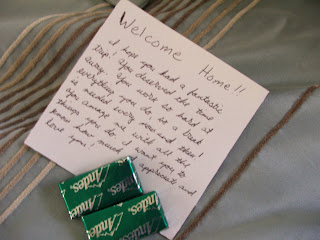 Welcome Home!!
I hope you had a fantastic
trip! You deserved the time
away. You work so hard at
everything you do & a break
is needed every now and then!
You amaze me with all the
things you do. I want you to
know how much I appreciate and
love you!
Andes
Andes